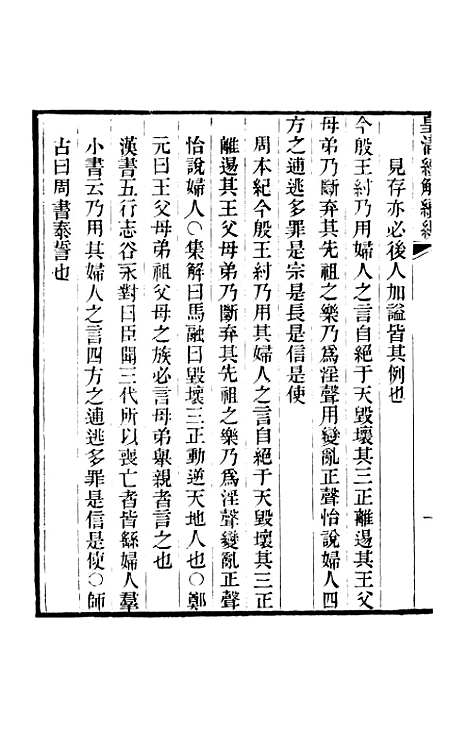 皇清經解續編
見存亦必後人加謚皆其例也
今殷王紂乃用婦人之言自絕于天毀壞其三正離逷其王父
母弟乃斷弃其先祖之樂乃爲淫聲用變亂正聲怡說婦人四
方之逋逃多罪是宗是長是信是使
周本紀今殷王紂乃用其婦人之言自絕于天毀壞其三正
離逷其王父母弟乃斷弃其先祖之樂乃爲淫聲變亂正聲
怡說婦人○集解曰馬融曰毀壞三正動逆天地人也○鄭
元曰王父母弟祖父母之族必言母弟舉親者言之也
漢書五行志谷永對曰臣聞三代所以喪亡者皆繇婦人羣
小書云乃用其婦人之言四方之逋逃多罪是信是使○師
古曰周書泰誓也